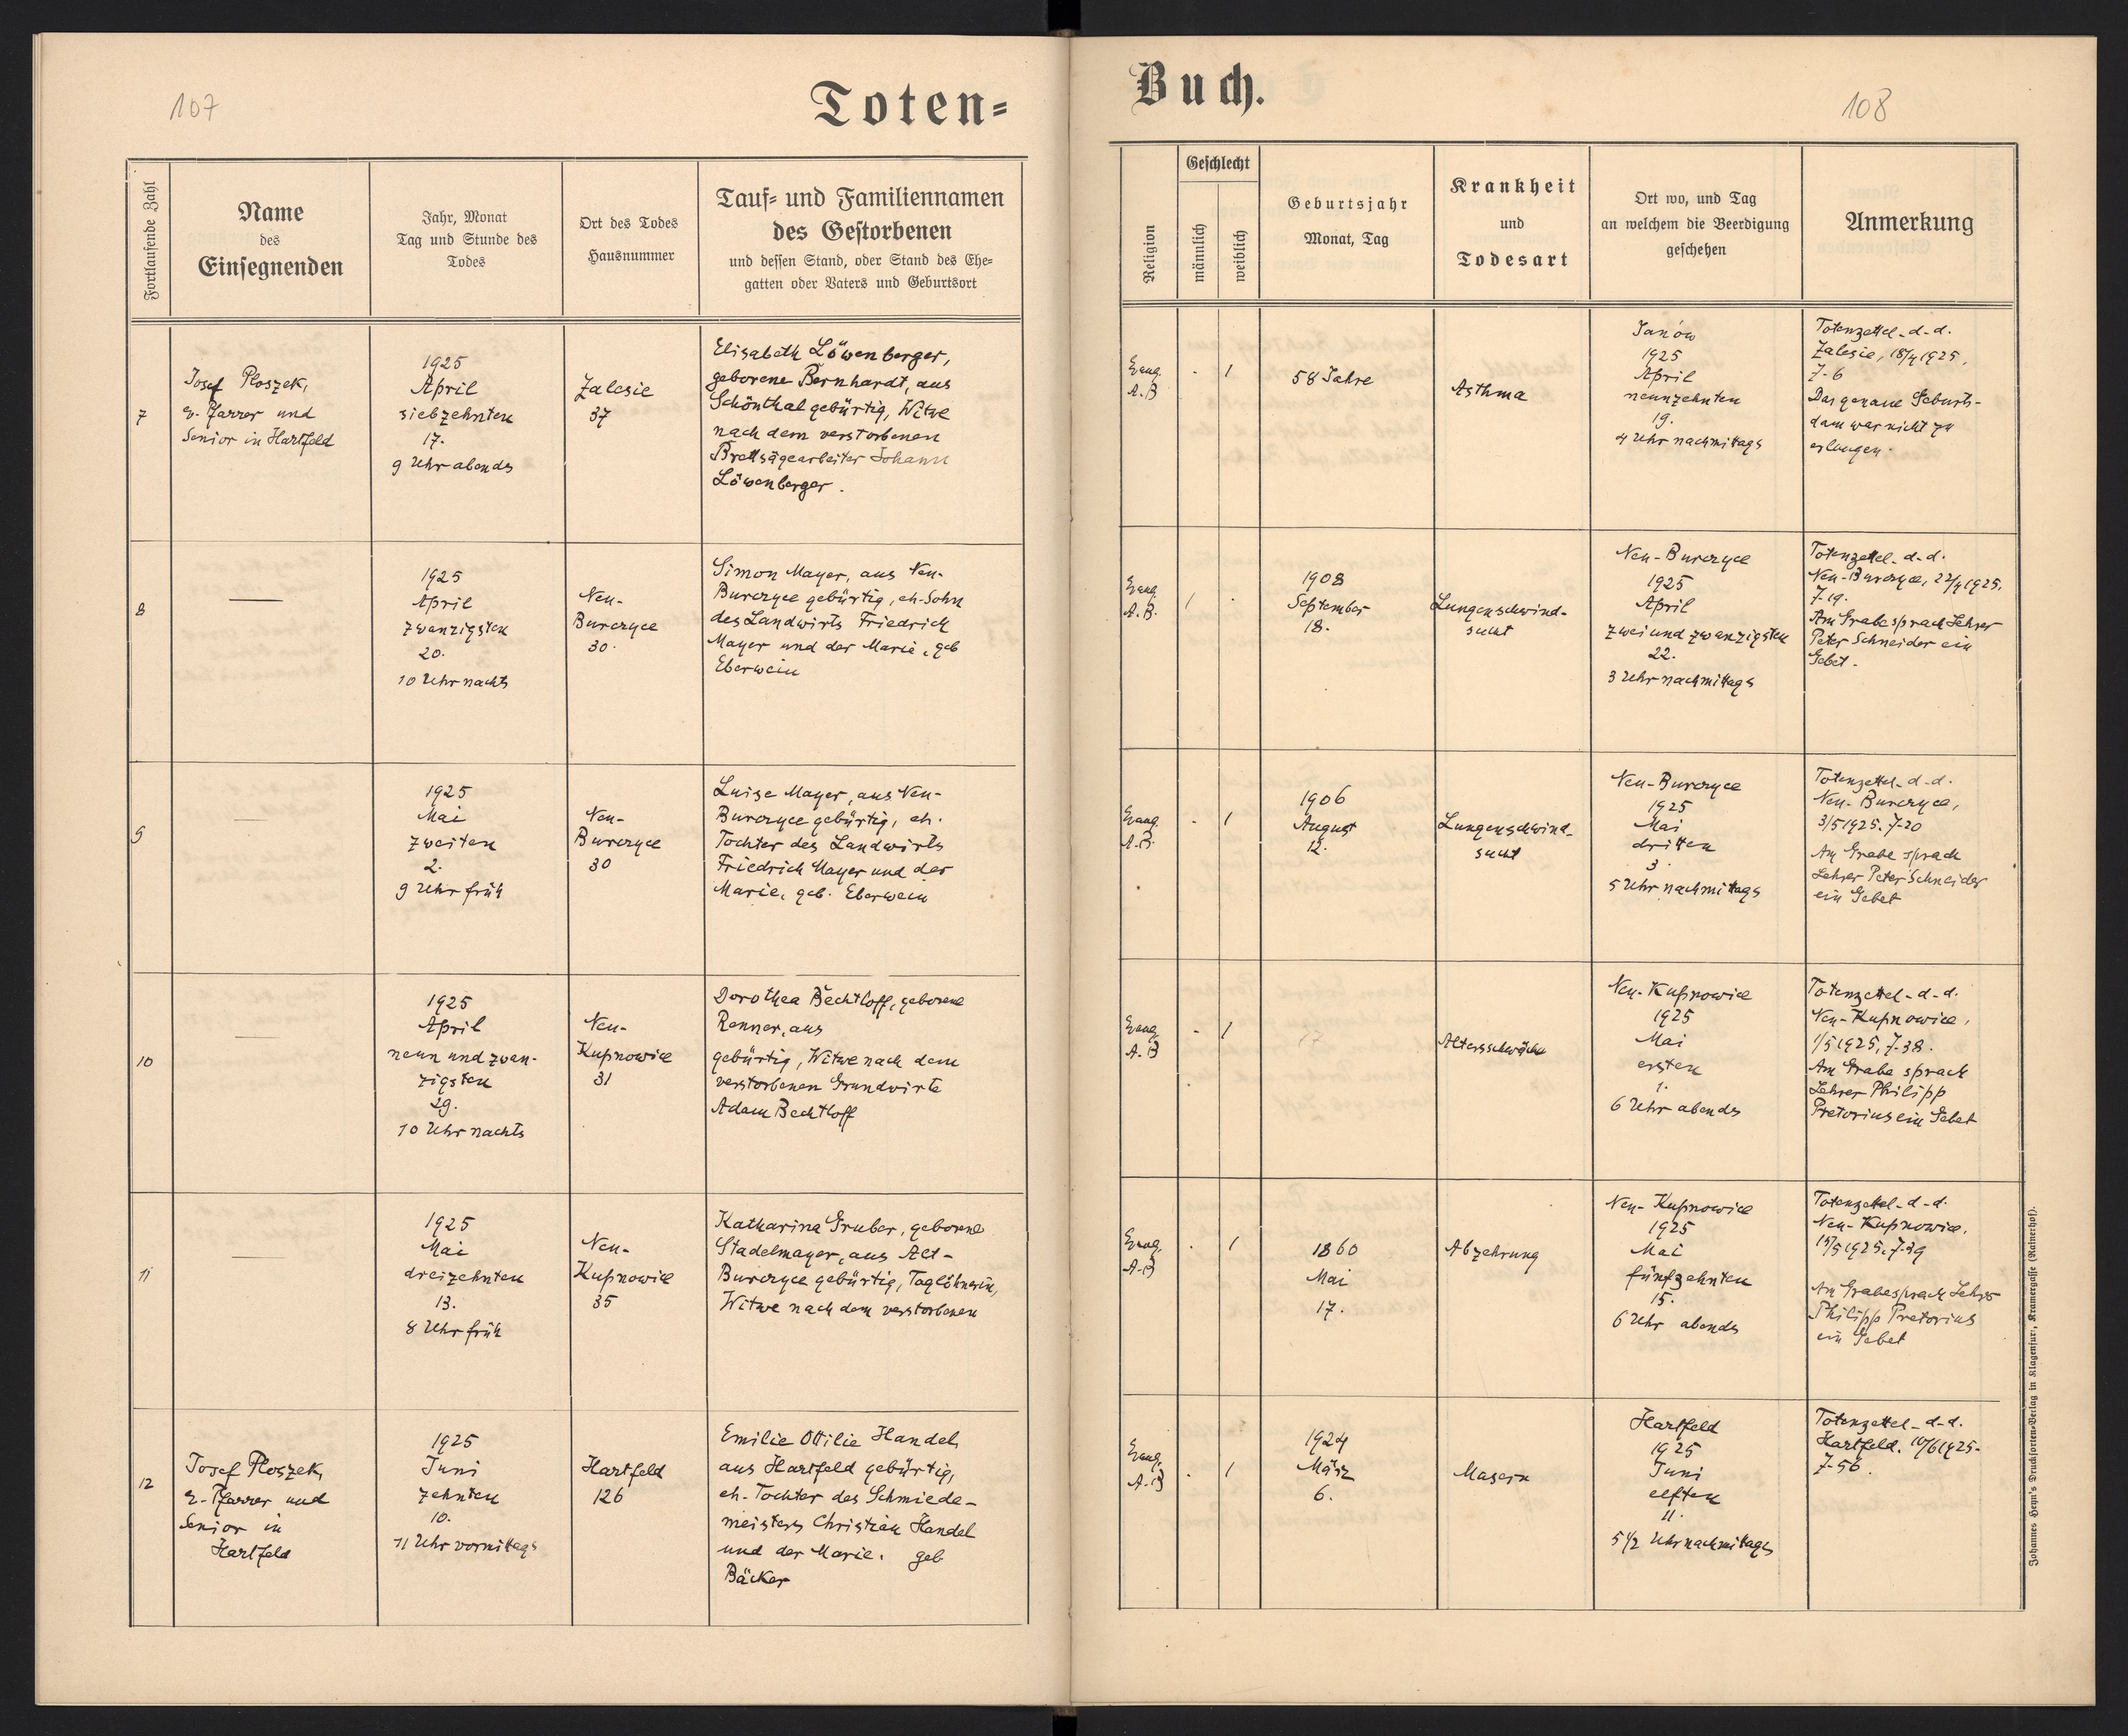 107
Toten=
Fortlaufende Zahl
Name
des
Einsegnenden
Jahr, Monat
Tag und Stunde des
Todes
Ort des Todes
Hausnummer
Tauf= und Familiennamen
des Gestorbenen
und dessen Stand, oder Stand des Ehe=
gatten oder Vaters und Geburtsort
7
Josef Ploszek,
ev. Pfarrer und
Senior in Hartfeld
1925
April
siebzehnten
17.
9 Uhr abends
Zalesie
37
Elisabeth Löwenberger,
geborene Bernhardt, aus
Schönthal gebürtig, Witwe
nach dem verstorbenen
Brettsägearbeiter Johann
Löwenberger.
8
1925
April
zwanzigsten
20.
10 Uhr nachts
Neu-
Burczyce
30.
Simon Mayer, aus Neu-
Burczyce gebürtig, eh. Sohn
des Landwirts Friedrich
Mayer und der Marie, geb
Eberwein
9
1925
Mai
zweiten
2.
9 Uhr früh
Neu-
Burczyce
30
Luise Mayer, aus Neu-
Burczyce gebürtig, eh.
Tochter des Landwirts
Friedrich Mayer und der
Marie, geb. Eberwein
10
1925
April
neun und zwan-
zigsten
29.
10 Uhr nachts
Neu-
Kupnowice
31
Dorothea Bechtloff, geborene
Renner, aus
gebürtig, Witwe nach dem
verstorbenen Grundwirte
Adam Bechtloff
11
1925
Mai
dreizehnten
13.
8 Uhr früh
Neu-
Kupnowice
35
Katharina Gruber, geborene
Stadelmayer, aus Alt-
Burczyce gebürtig, Taglöhnerin,
Witwe nach dem verstorbenen
12
Josef Ploszek,
ev. Pfarrer und
Senior in
Hartfeld
1925
Juni
zehnten
10.
11 Uhr vormittags
Hartfeld
126
Emilie Ottilie Handel,
aus Hartfeld gebürtig,
eh. Tochter des Schmiede-
meisters Christian Handel
und der Marie. geb
Bäcker
Buch.
108
Religion
Geschlecht
männlich
weiblich
Geburtsjahr
Monat, Tag
Krankheit
und
Todesart
Ort wo, und Tag
an welchem die Beerdigung
geschehen
Anmerkung
Evang.
A.B
-
1
58 Jahre
Asthma
Janów
1925
April
neunzehnten
19.
4 Uhr nachmittags
Totenzettel d.d.
Zalesie, 18/4 1925,
Z. 6
Das genaue Geburts-
dam war nicht zu
erlangen.
Evang.
A.B.
1
-
1908
September
18.
Lungenschwind-
sucht
Neu-Burczyce
1925
April
zwei und zwanzigsten
22.
3 Uhr nachmittags
Totenzettel d.d.
Neu-Burczyce, 22/4 1925.
Z. 19.
Am Grabe sprach Lehrer
Peter Schneider ein
Gebet.
Evang.
A.B.
-
1
1906
August
12.
Lungenschwind-
sucht
Neu-Burczyce
1925
Mai
dritten
3.
5 Uhr nachmittags
Totenzettel d.d.
Neu-Burczyce,
3/5 1925. Z. 20
Am Grabe sprach
Lehrer Peter Schneider
ein Gebet
Evang.
A.B
-
1
Altersschwäche
Neu-Kupnowice
1925
Mai
ersten
1.
6 Uhr abends
Totenzettel d.d.
Neu-Kupnowice,
1/5 1925, Z. 38.
Am Grabe sprach
Lehrer Philipp
Pretorius ein Gebet
Evang.
A.B
-
1
1860
Mai
17.
Abzehrung
Neu-Kupnowice
1925
Mai
fünfzehnten
15.
6 Uhr abends
Totenzettel d.d.
Neu-Kupnowice,
15/5 1925. Z. 39
Am Grabe sprach Lehrer
Philipp Pretorius
ein Gebet
Evang.
A.B
-
1
1924
März
6.
Masern
Hartfeld
1925
Juni
elften
11.
5 1/2 Uhr nachmittags
Totenzettel d.d.
Hartfeld. 10/6 1925.
Z. 56.
Johannes Heyn's Drucksorten-Verlag in Klagenfurt, Kramergasse (Rainerhof).